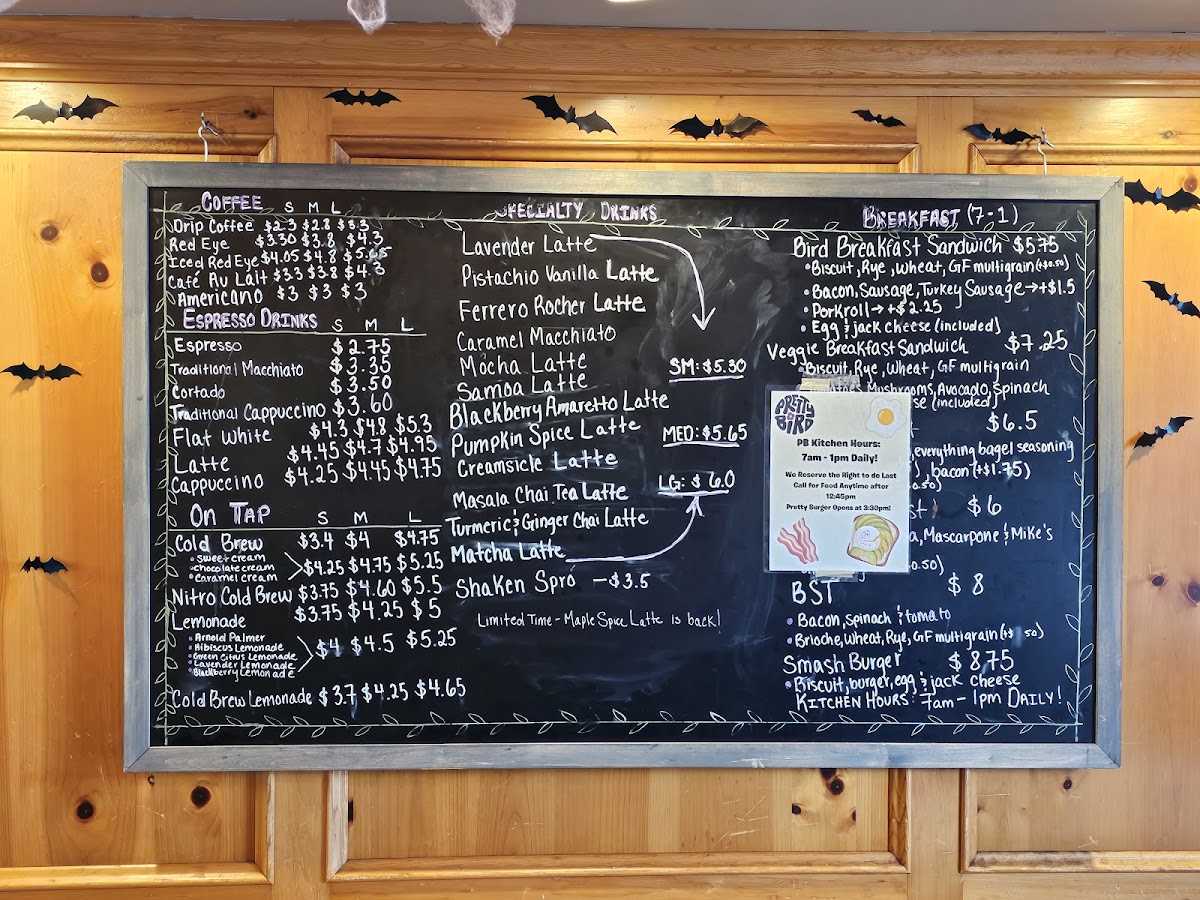 COFFEE S M L
Drip Coffee $2.3 $2.8 $3.3
Red Eye $3.30 $3.8 $4.3
Iced Red Eye $4.05 $4.8 $5.65
Café Au Lait $3.3 $3.8 $4.3
Americano $3 $3 $3
ESPRESSO DRINKS S M L
Espresso $2.75
Traditional Macchiato $3.35
Cortado $3.50
Traditional Cappuccino $3.60
Flat White $4.3 $4.8 $5.3
Latte $4.45 $4.7 $4.95
Cappuccino $4.25 $4.45 $4.75
ON TAP S M L
Cold Brew $3.4 $4 $4.75
• Sweet cream
• chocolate cream $4.25 $4.75 $5.25
• caramel cream
Nitro Cold Brew $3.75 $4.60 $5.5
Lemonade $3.75 $4.25 $5
• Arnold Palmer
• Hibiscus Lemonade
• Green Citrus Lemonade $4 $4.5 $5.25
• Lavender Lemonade
• Blackberry Lemonade
Cold Brew Lemonade $3.7 $4.25 $4.65
SPECIALTY DRINKS
Lavender Latte
Pistachio Vanilla Latte
Ferrero Rocher Latte
Caramel Macchiato
Mocha Latte
Samoa Latte
Blackberry Amaretto Latte
Pumpkin Spice Latte
Creamsicle Latte
Masala Chai Tea Latte
Turmeric & Ginger Chai Latte
Matcha Latte
SM: $5.30
MED: $5.65
LG: $6.0
Shaken Spro - $3.5
Limited Time - Maple Spice Latte is back!
BREAKFAST (7-1)
Bird Breakfast Sandwich $5.75
• Biscuit, Rye, Wheat, GF multigrain (+$0.50)
• Bacon, Sausage, Turkey Sausage → +$1.5
• Porkroll → +$2.25
• Egg & jack cheese (included)
Veggie Breakfast Sandwich $7.25
Biscuit, Rye, Wheat, GF multigrain
Mushrooms, Avocado, Spinach
(included)
$6.5
, everything bagel seasoning
, bacon (+$1.75)
$6
, Mascarpone & Mike's
BST $8
• Bacon, spinach & tomato
• Brioche, Wheat, Rye, GF multigrain (+$ 50)
Smash Burger $8.75
• Biscuit, burger, egg & jack cheese
KITCHEN HOURS: 7am - 1pm DAILY!
PRETTY
BIRD
PB Kitchen Hours:
7am - 1pm Daily!
We Reserve the Right to do Last
Call for Food Anytime after
12:45pm
Pretty Burger Opens at 3:30pm!